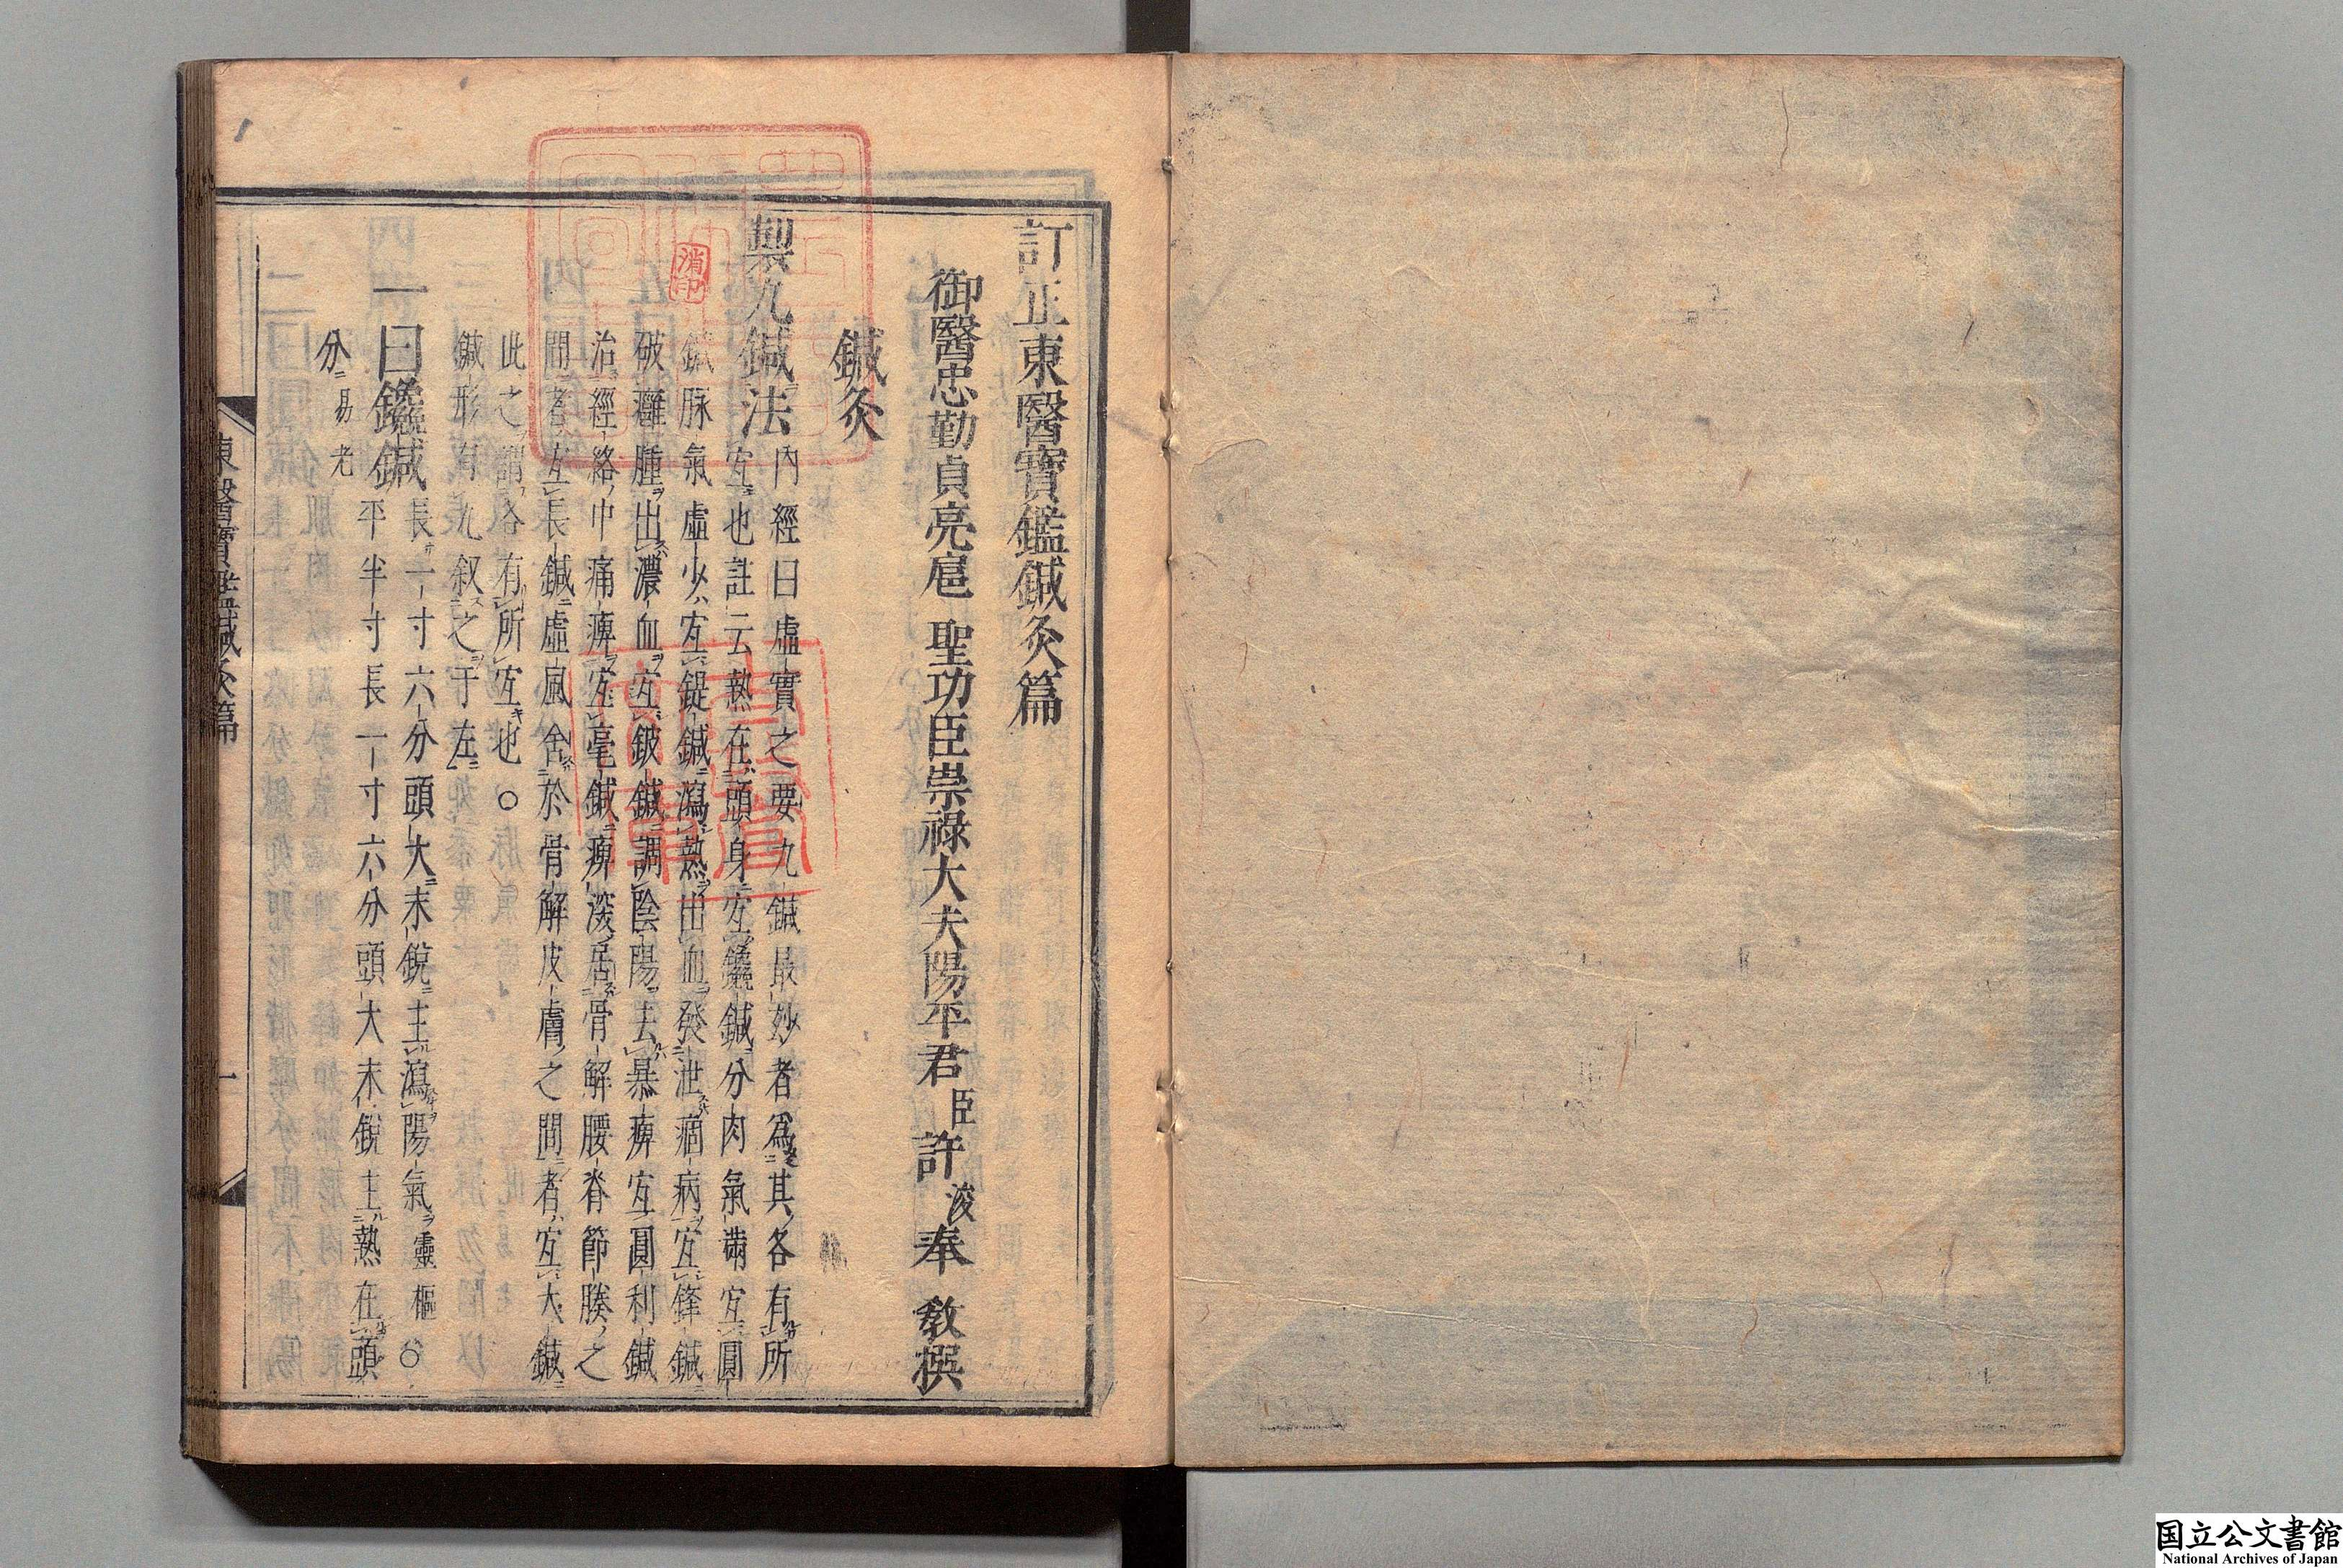 訂正東醫寶鑑鍼灸篇
御醫忠勤貞亮扈 聖功臣崇祿大夫陽平君臣許浚奉 敎撰
鍼灸
製九鍼法內經曰虛實之要九鍼最妙者爲其各有所
宐也註云熱在頭身宐鑱鍼分肉氣滿宐圓
鍼脉氣虛少宐鍉鍼瀉熱出血發泄痼病宐鋒鍼
破癰腫出濃血宐鈹鍼調陰陽去暴痹宐圓利鍼
治經絡中痛痹宐毫鍼痹深居骨解腰脊節腠之
間者宐長鍼虛風舍於骨解皮膚之間者宐大鍼
此之謂各有所宐也○
鍼形有九叙之于左
一曰鑱鍼長一寸六分頭大末銳主瀉陽氣靈樞○
平半寸長一寸六分頭大末銳主熱在頭
分易老
東醫寶鑑鍼灸篇
一
消印
国立公文書館
National Archives of Japan